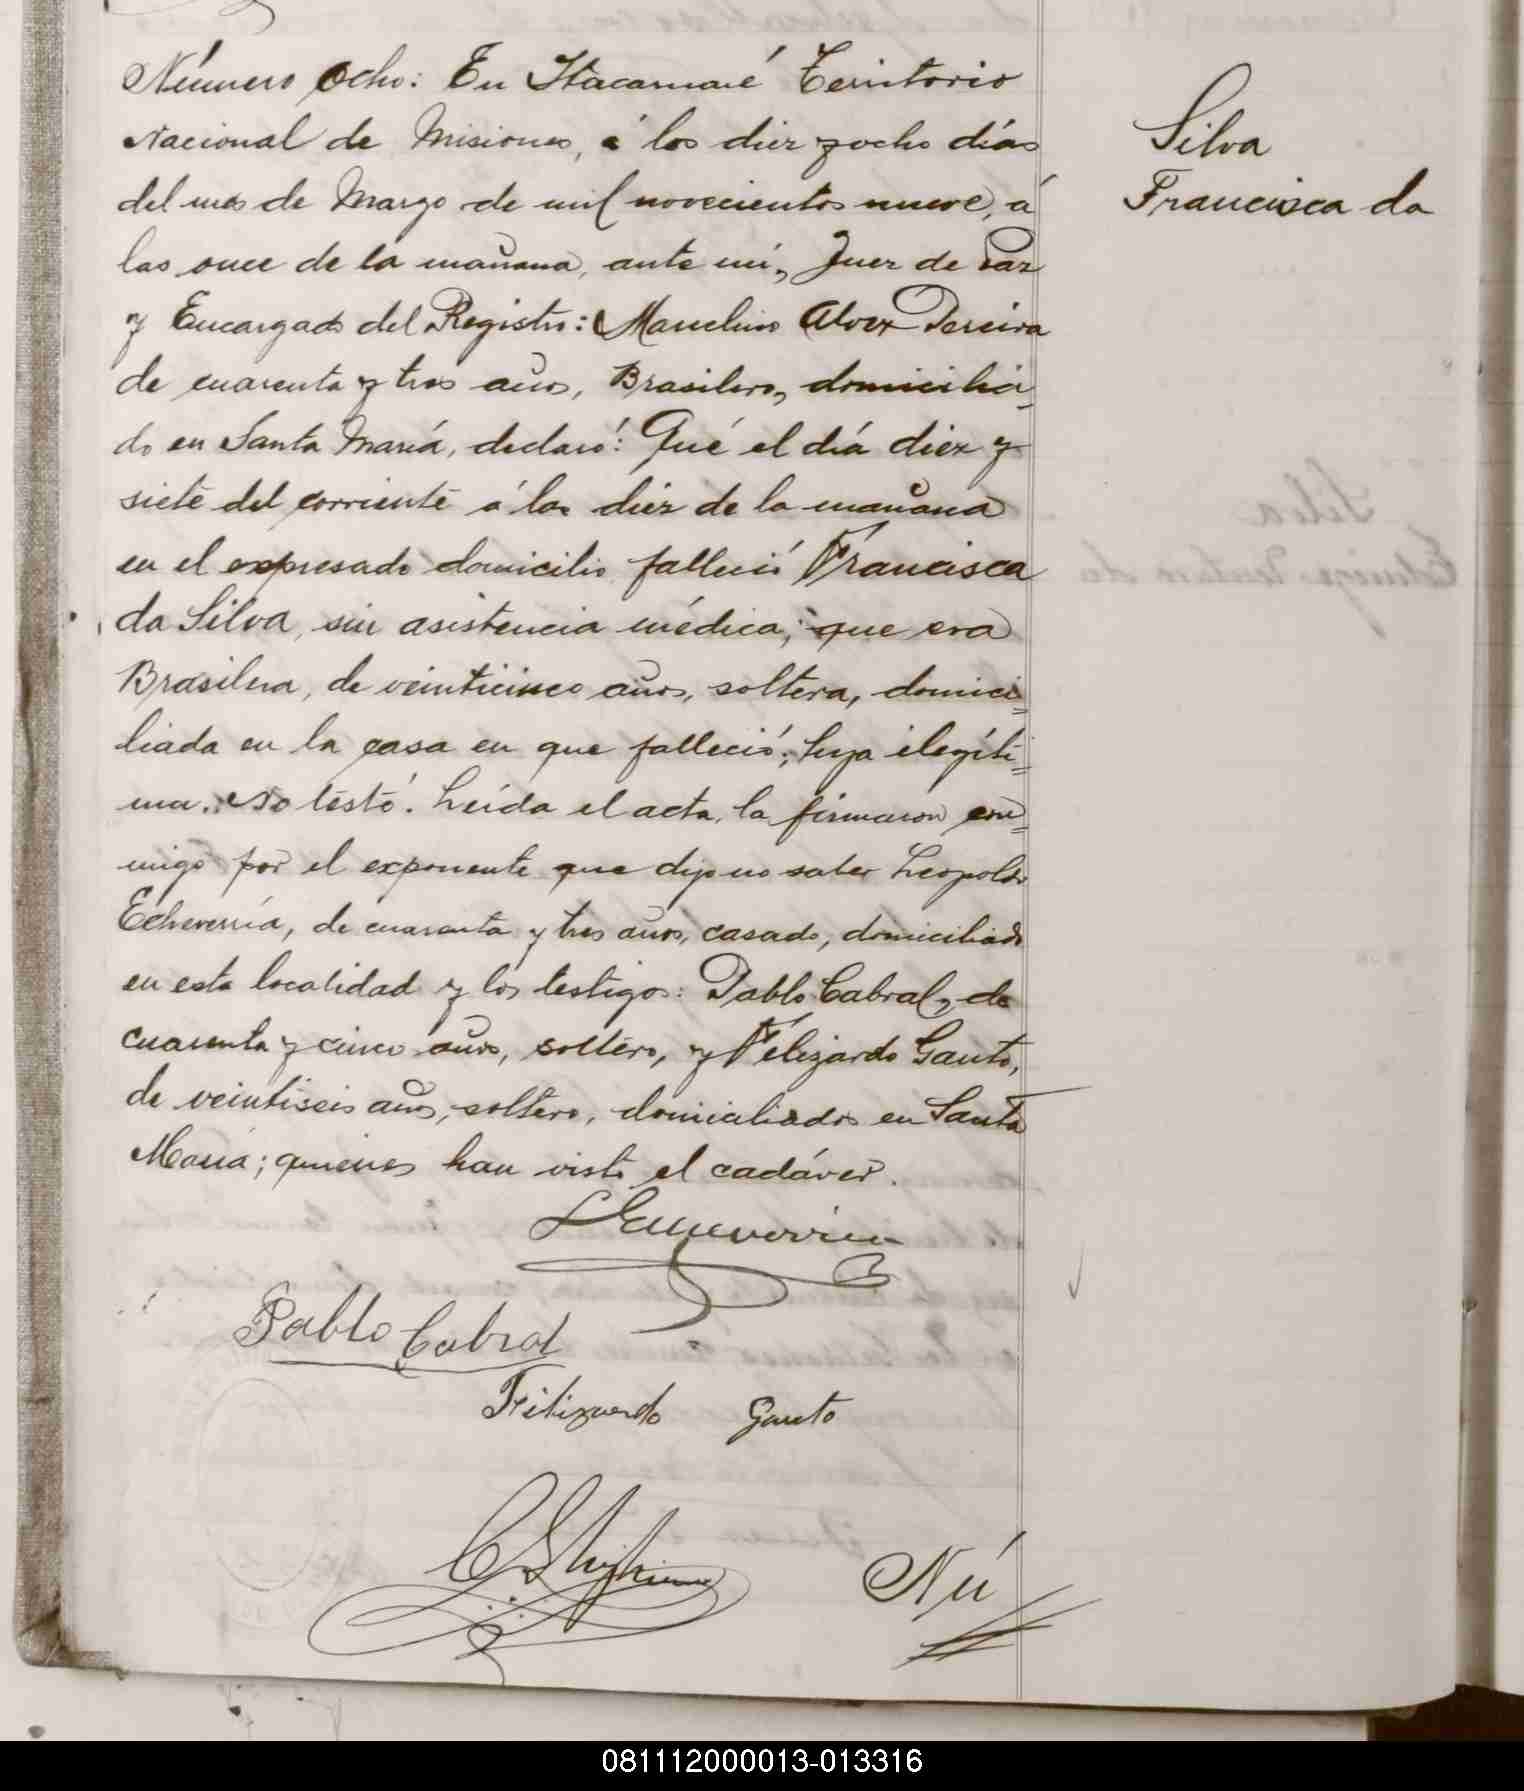 Número Ocho: En Itacaruaré Territorio
Nacional de Misiones, á los diez y ocho días
del mes de Marzo de mil novecientos nueve, á
las once de la mañana, ante mí, Juez de Paz
y Encargado del Registro: Marcelino Alvez Pereira
de cuarenta y tres años, Brasilero, domicilia-
do en Santa María, declaró: Qué el día diez y
siete del corriente á las diez de la mañana
en el expresado domicilio falleció Francisca
da Silva, sin asistencia médica; que era
Brasilera, de veinticinco años, soltera, domici=
liada en la casa en que falleció; hija ilegíti=
ma. No testó. Leída el acta, la firmaron con=
migo por el exponente que dijo no saber Leopoldo
Echeverría, de cuarenta y tres años, casado, domiciliado
en esta localidad y los testigos: Pablo Cabral, de
cuarenta y cinco años, soltero, y Felizardo Gauto,
de veintiseis años, soltero, domiciliados en Santa
María; quienes han visto el cadáver.
LEcheverria
Pablo Cabral
Felizardo Gauto
Nú
Silva
Francisca da
081112000013-013316